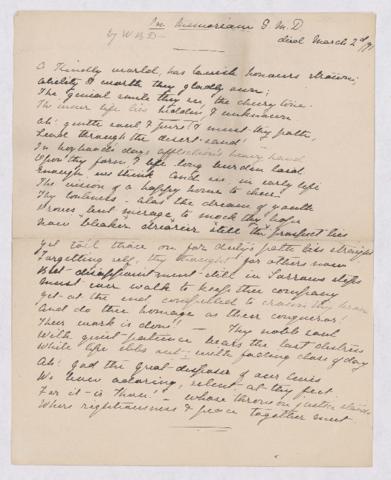 In Memoriam G. M. D
by W. B. D. died March 2nd /9
O Kindly world, has lavish honours strewn;
Ability & worth they gladly own;
The Genial smile they see, the cheery tone.
The inner life lies hidden, & unknown
Ah! gentle soul & pure! & must thy path,
Lead through the desert-sand!
In boyhoods days affliction's heavy hand
Upon thy form, a life-long burden laid.
Enough, we think! And in early life
The vision of a happy home to cheer
Thy loneliness - Alas! the dream of youth
Proves but mirage to mock thy hope
Now bleaker, drearier still the prospect lies
Yet toil thou on, for duty's path lies straight
Forgetting self, thy thought for others now
But disappointment still in Sorrows steps
Must ever walk to keep thee company
Yet at the end compelled to crown thy brow
And do thee homage as their conqueror!
Their work is done! - Thy noble soul
With quiet patience bears the last distress
While life ebbs out - with fading close of day
Ah! God the Great disposer of our lives
We bow adoring, silent at thy feet
For it is Thou! - whose throne on justice stands
Where righteousness & peace together meet.